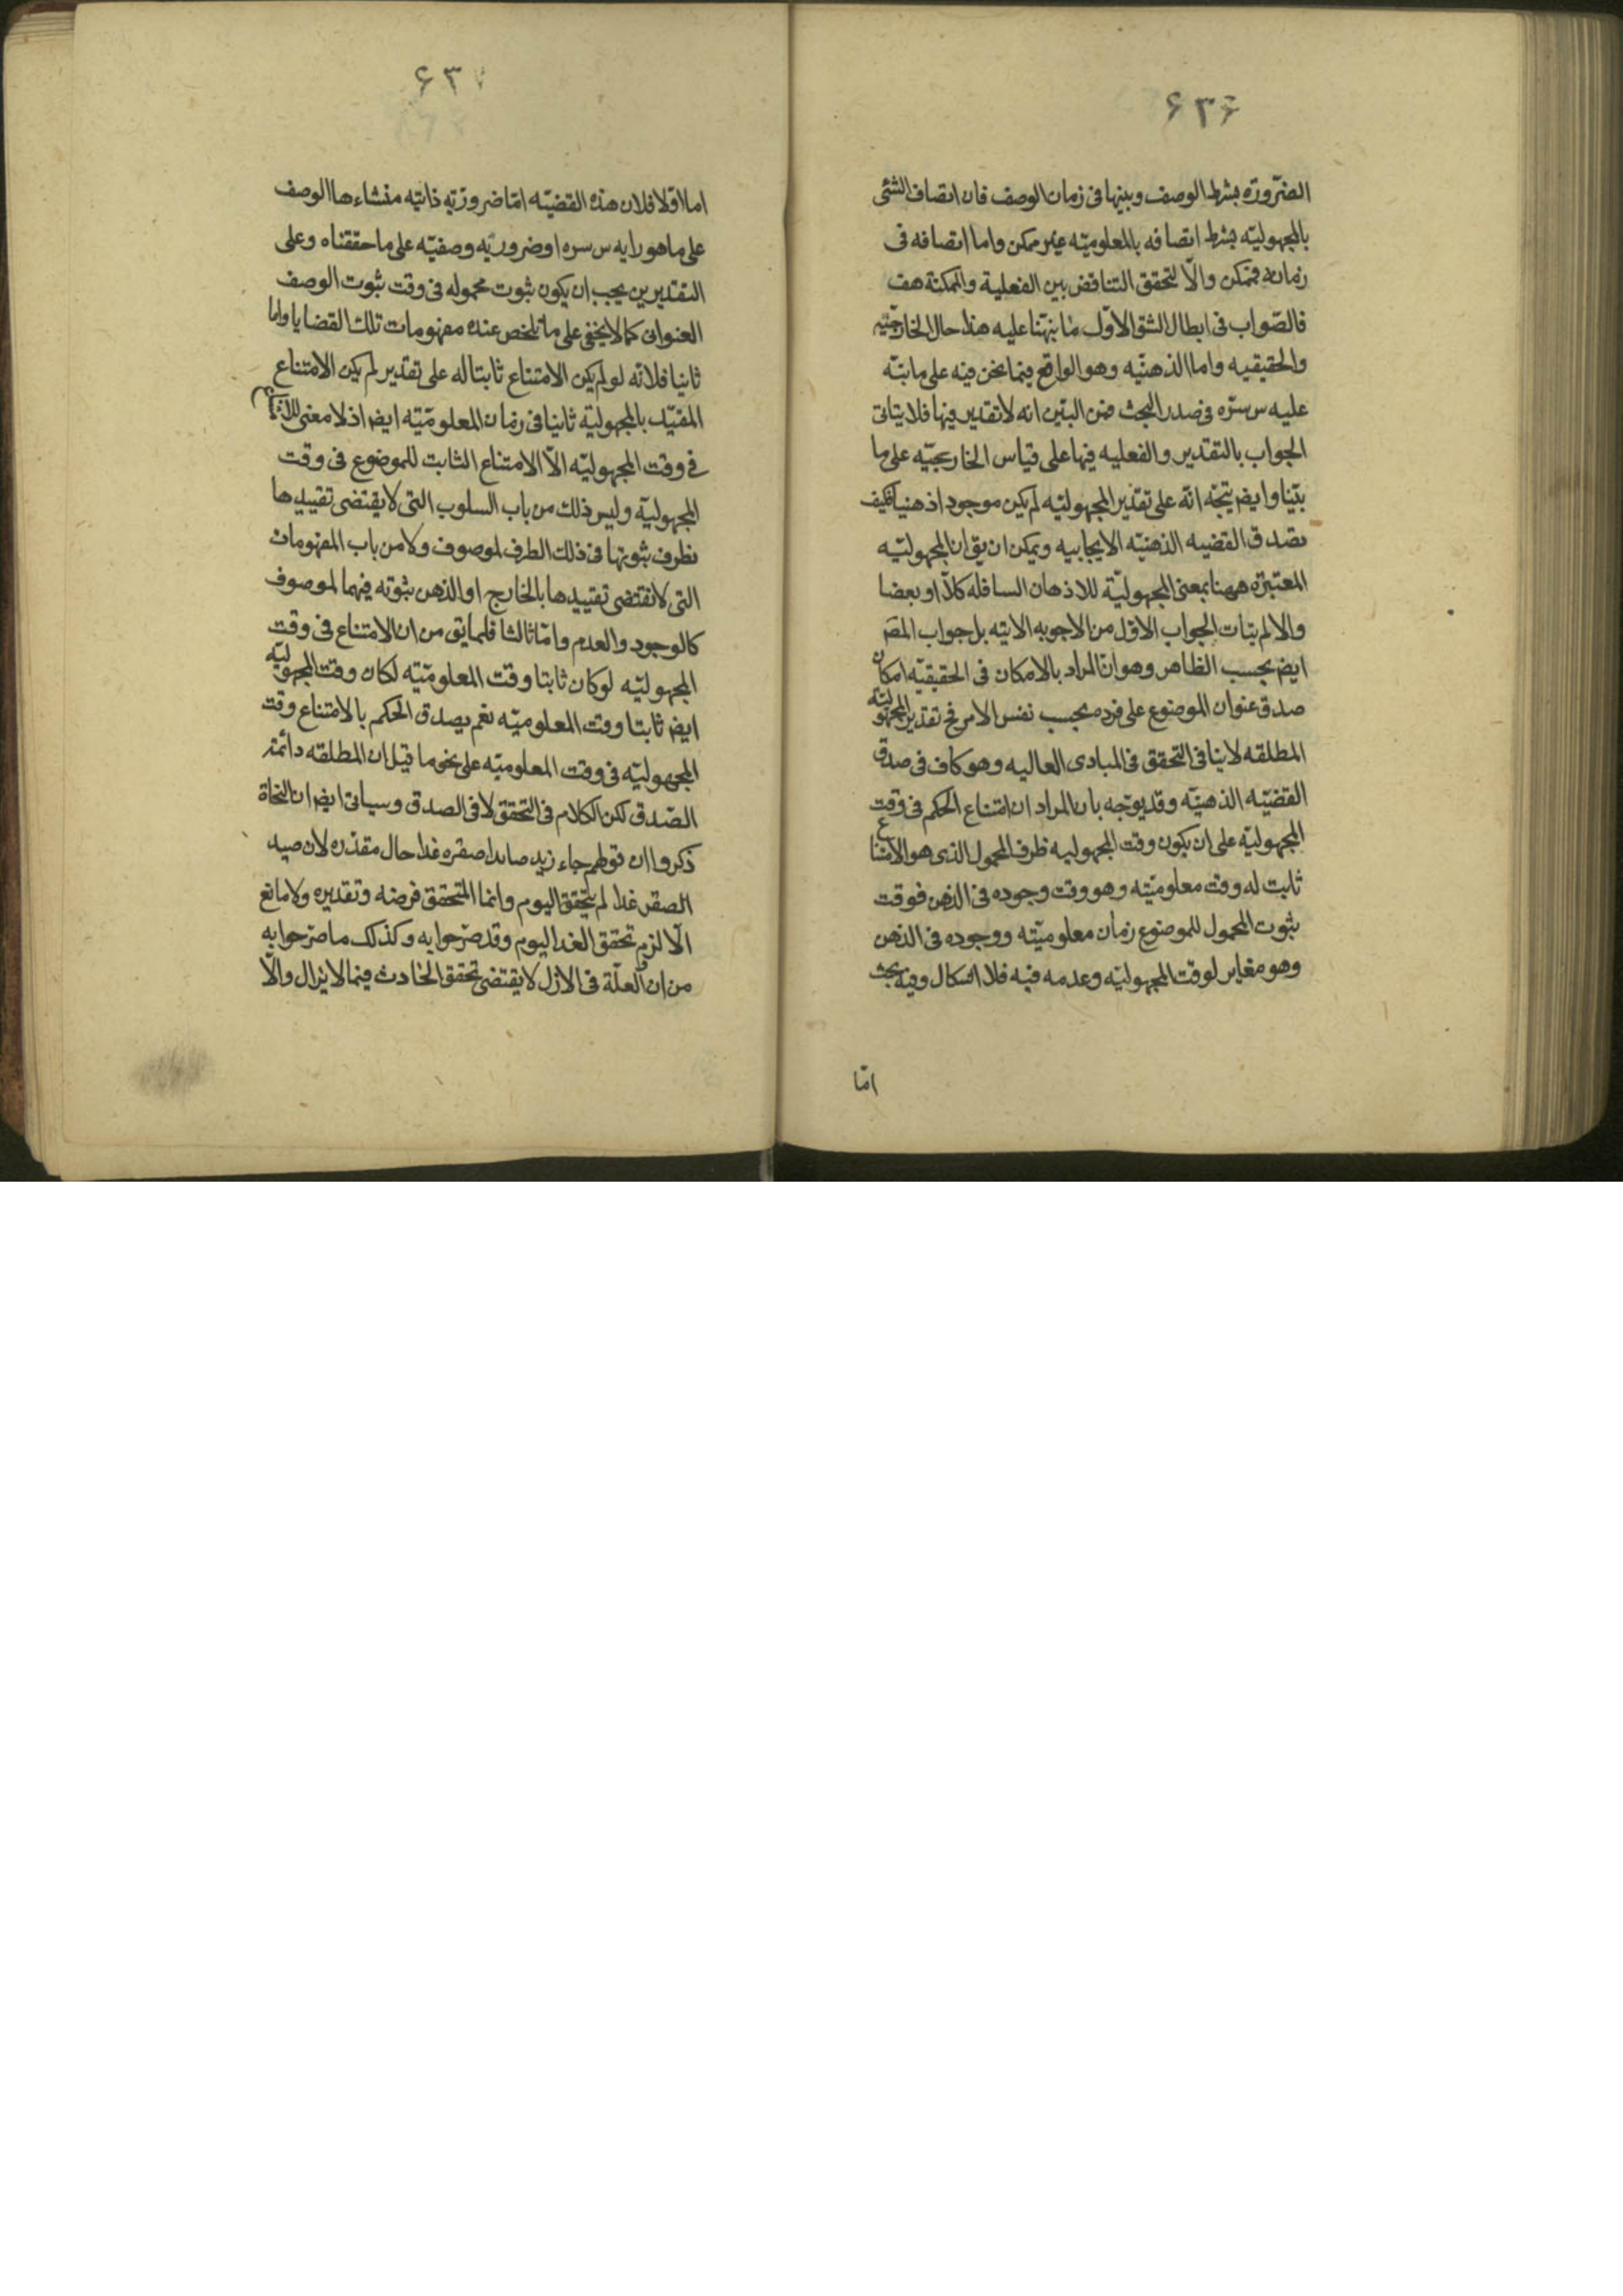 ۶۳۶
الضرورة بشرط الوصف وبينها فى زمان الوصف فان اتصاف الشئ
بالمجهوليّه بشرط اتصافه بالمعلوميّه غير ممكن واما اتصافه فى
زمانه فممكن والّا لتحقق التناقض بين الفعلية والممكنة هف
فالصّواب فى ابطال الشق الاوّل ما نبّهنا عليه هذا حال الخارجيّه
والحقيقيه واما الذهنيّه وهو الواقع فيما نحن فيه على ما نبّه
عليه س سرّه فى صدر البحث فمن البيّن انه لا تقدير فيها فلا يتاتى
الجواب بالتقدير والفعليه فيها على قياس الخارجيّه على ما
بيّنا وايضا يتجّه انّه على تقدير المجهوليّه لم يكن موجودا ذهنيا فكيف
تصدق القضيه الذهنيّه الايجابيه ويمكن ان يق ان المجهوليّه
المعتبرة ههنا بمعنى المجهوليّة للاذهان السافله كلّا او بعضا
والا لم يتات الجواب الاوّل من الاجوبه الاتيه بل جواب المصّ
ايض بحسب الظاهر وهو ان المراد بالامكان فى الحقيقيّه امكان
صدق عنوان الموضوع على فرده بحسب نفس الامر فح تقدير المجهوليّه
المطلقه لا ينافى التحقق فى المبادى العاليه وهو كاف فى صدق
القضيّه الذهنيّه وقد يوجّه بان المراد ان امتناع الحكم فى وقت
المجهوليّه على ان يكون وقت المجهوليه ظرف المحمول الذى هو الامتناع
ثابت له وقت معلوميّته وهو وقت وجوده فى الذهن فوقت
ثبوت المحمول للموضوع زمان معلوميّته ووجوده فى الذهن
وهو مغاير لوقت المجهوليّه وعدمه فيه فلا اشكال وفيه بحث
امّا
۶۳۷
اما اوّلا فلان هذه القضيّه امّا ضروريّه ذاتيّه منشاءها الوصف
على ما هو رايه س سره او ضروريّه وصفيّه على ما حققناه وعلى
التقديرين يجب ان يكون ثبوت محموله فى وقت ثبوت الوصف
العنوانى كما لا يخفى على من تلخص عنده مفهومات تلك القضايا واما
ثانيا فلانّه لو لم يكن الامتناع ثابتا له على تقدير لم يكن الامتناع
المقيّد بالمجهوليّة ثابتا فى زمان المعلوميّته ايض اذ لا معنى للامتناع
فى وقت المجهوليّه الّا الامتناع الثابت للموضوع فى وقت
المجهوليّه وليس ذلك من باب السلوب التى لا يقتضى تقييدها
بظرف ثبوتها فى ذلك الظرف لموصوف ولا من باب المفهومات
التى لا تقتضى تقييدها بالخارج او الذهن ثبوته فيهما لموصوف
كالوجود والعدم وامّا ثالثا فلما يق من ان الامتناع فى وقت
المجهوليّه لو كان ثابتا وقت المعلوميّه لكان وقت المجهوليّه
ايض ثابتا وقت المعلوميّه نعم يصدق الحكم بالامتناع وقت
المجهوليّه فى وقت المعلوميّه على نحو ما قيل ان المطلقه دائمة
الصّدق لكن الكلام فى التحقق لا فى الصدق وسياتى ايض ان النحاة
ذكروا ان قولهم جاء زيد صايدا صقره غدا حال مقدّره لان صيد
الصقر غدا لم يتحقق اليوم وانما المتحقق فرضه وتقديره ولا مانع
الّا لزم تحقق الغد اليوم وقد صرّحوا به وكذلك ما صرّحوا به
من ان العلّة فى الازل لا يقتضى تحقق الحادث فيما لا يزال والّا